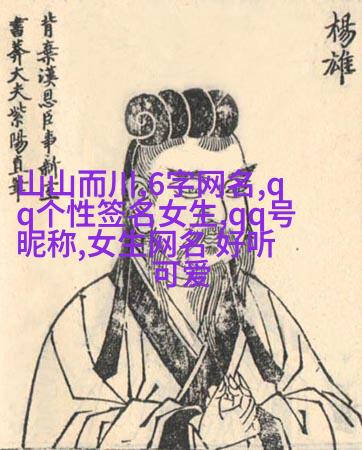 楊雄
背棄漢恩臣事新
書莽大夫紫陽直筆
山山而川,6字网名,q
q个性签名女生 qq号
昵称,女生网名 好听
可爱